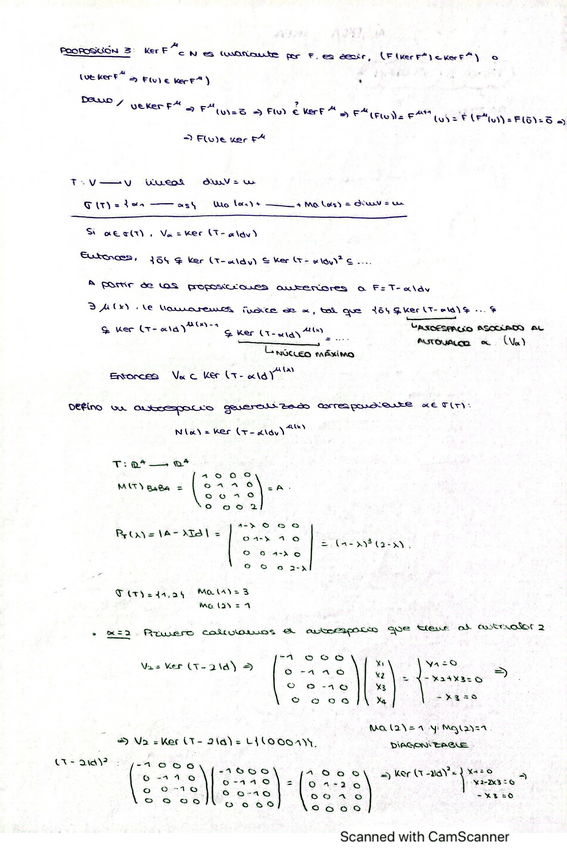 PROPOSICIÓN 3: Ker F^μ ⊂ N es invariante por F. es decir, (F(Ker F^μ) ⊂ Ker F^μ) o
(v∈Ker F^μ ⇒ F(v) ∈ Ker F^μ)
Demo / v∈Ker F^μ ⇒ F^μ(v)=ō ⇒ F(v) ∈? Ker F^μ ⇒ F^μ(F(v))= F^μ+1(v)= F(F^μ(v))=F(ō)=ō ⇒
⇒ F(v)∈ Ker F^μ
T: V — V lineal dim V = n
σ(T) = {α1 — αs} Ma(α1)+ — + Ma(αs)= dim V = n
Si α∈σ(T), Vα = Ker (T-αIdv)
Entonces, {ō} ⊊ Ker (T-αIdv) ⊆ Ker (T-αIdv)² ⊆ ....
A partir de las proposiciones anteriores a F=T-αIdv
∃ μ(α). le llamaremos índice de α, tal que {ō} ⊊ Ker (T-αId) ⊊ ... ⊊
⊊ Ker (T-αId)^μ(α)-1 ⊊ Ker (T-αId)^μ(α) = ....
↳ AUTOESPACIO ASOCIADO AL
AUTOVALOR α (Vα)
↳ NÚCLEO MÁXIMO
Entonces Vα ⊂ Ker (T-αId)^μ(α)
Defino un autoespacio generalizado correspondiente α∈σ(T):
N(α) = Ker (T-αIdv)^μ(α)
T: ℝ⁴ — ℝ⁴
M(T) B4B4 = (1 0 0 0
0 1 1 0
0 0 1 0
0 0 0 2) = A.
PT(λ) = |A - λId| = |1-λ 0 0 0
0 1-λ 1 0
0 0 1-λ 0
0 0 0 2-λ| = (1-λ)³(2-λ).
σ(T) = {1,2} Ma(1) = 3
Ma(2) = 1
• α=2 Primero calculamos el autoespacio que tiene al autovalor 2
V2 = Ker (T-2Id) ⇒ (-1 0 0 0
0 -1 1 0
0 0 -1 0
0 0 0 0) (x1
x2
x3
x4) = { x1=0
-x2+x3=0
-x3=0 ⇒
Ma(2)=1 y Mg(2)=1.
⇒ V2 = Ker (T-2Id) = L{(0001)}. DIAGONIZABLE
(T-2Id)²: (-1 0 0 0
0 -1 1 0
0 0 -1 0
0 0 0 0) (-1 0 0 0
0 -1 1 0
0 0 -1 0
0 0 0 0) = (1 0 0 0
0 1 -2 0
0 0 1 0
0 0 0 0) ⇒ Ker (T-2Id)² = { x1=0
x2-2x3=0
-x3=0 ⇒
Scanned with CamScanner